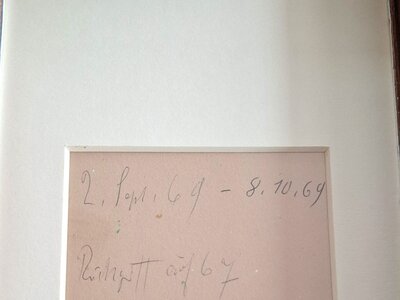 2. Sept. 69 - 8.10.69
Rückgriff auf 67